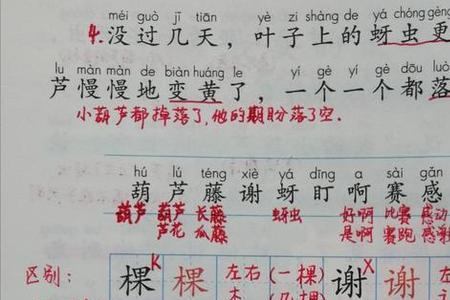 méi guò jǐ tiān yè zi shàng de yá chóng gèng
4.没过几天，叶子上的蚜虫更
lu màn màn de biàn huáng le yí gè yí gè dōu luò
芦慢慢地变黄了，一个一个都落
小葫芦都掉落了,他的期盼落了空.
hú lú téng xiè yá dīng a sài gǎn
葫芦藤谢蚜盯啊赛感
葫芦 葫芦 长藤 蚜虫 好啊 比赛 感动
芦花 瓜藤 是啊 赛跑 感谢
区别: 棵 K 棵 左右 (一棵) 谢 X 谢 左